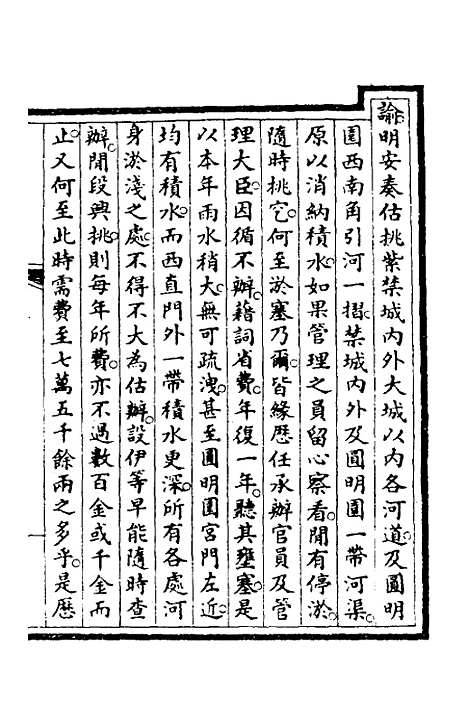 諭明安奏估挑紫禁城內外大城以內各河道及圓明
園西南角引河一摺禁城內外及圓明園一帶河渠
原以消納積水如果管理之員留心察看間有停淤
隨時挑挖何至淤塞乃爾皆緣歷任承辦官員及管
理大臣因循不辦藉詞省費年復一年聽其壅塞是
以本年雨水稍大無可疏洩甚至圓明園宮門左近
均有積水而西直門外一帶積水更深所有各處河
身淤淺之處不得不大為估辦設伊等早能隨時查
辦間段興挑則每年所費亦不過數百金或千金而
止又何至此時需費至七萬五千餘兩之多乎是歷